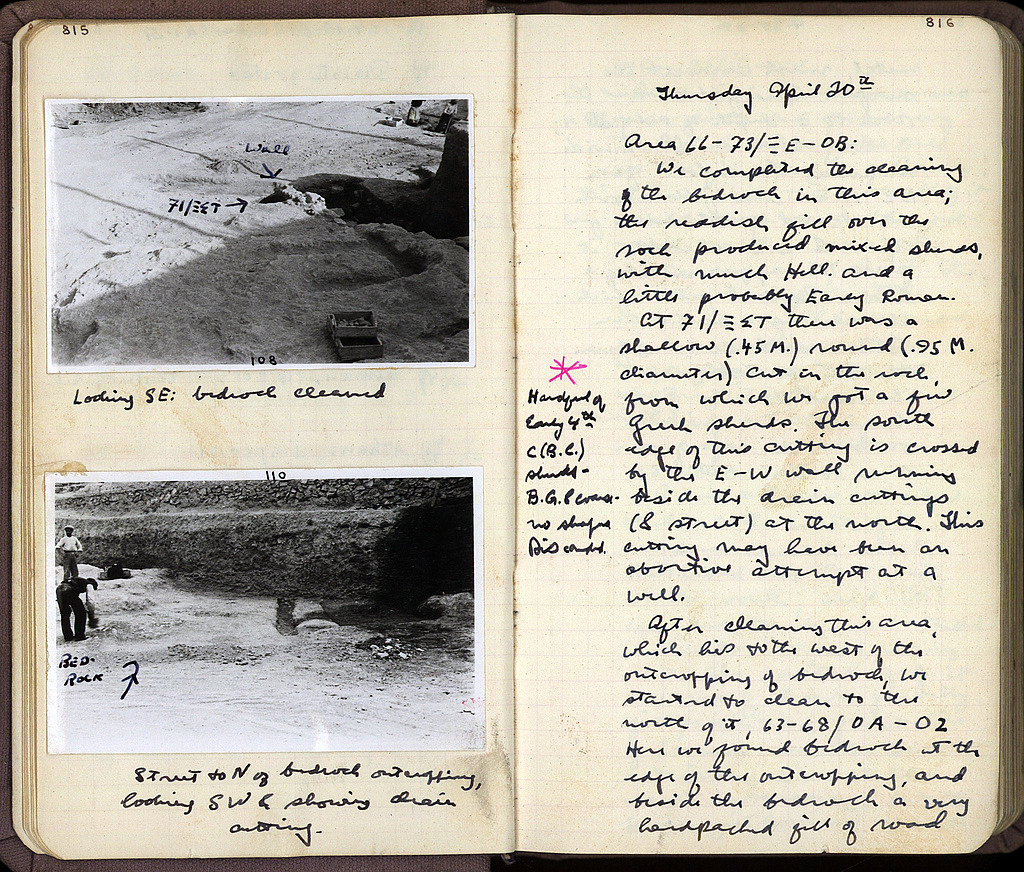 815
Wall
71/ΞΣΤ →
108
Looking SE: bedrock cleared
110
BED-
ROCK
Street to N of bedrock outcropping,
looking SW & showing drain
cutting.
816
Thursday April 20th
Area 66-73/Ξ E-OB:
We completed the clearing
of the bedrock in this area;
the reddish fill over the
rock produced mixed sherds,
with much Hell. and a
little probably Early Roman.
At 71/ΞΣΤ there was a
shallow (.45 M.) round (.95 M.
diameter) cut in the rock,
from which we got a few
Greek sherds. The south
edge of this cutting is crossed
by the E-W wall running
beside the drain cuttings
(& street) at the north. This
cutting may have been an
abortive attempt at a
well.
Handful of
Early 4th
c (B.C.)
sherds-
B.G. & coarse-
no shapes
Discarded.
After clearing this area,
which lies to the west of the
outcropping of bedrock, we
started to clear to the
north of it, 63-68/OA-OZ
Here we found bedrock at the
edge of the outcropping, and
beside the bedrock a very
hardpacked fill of road